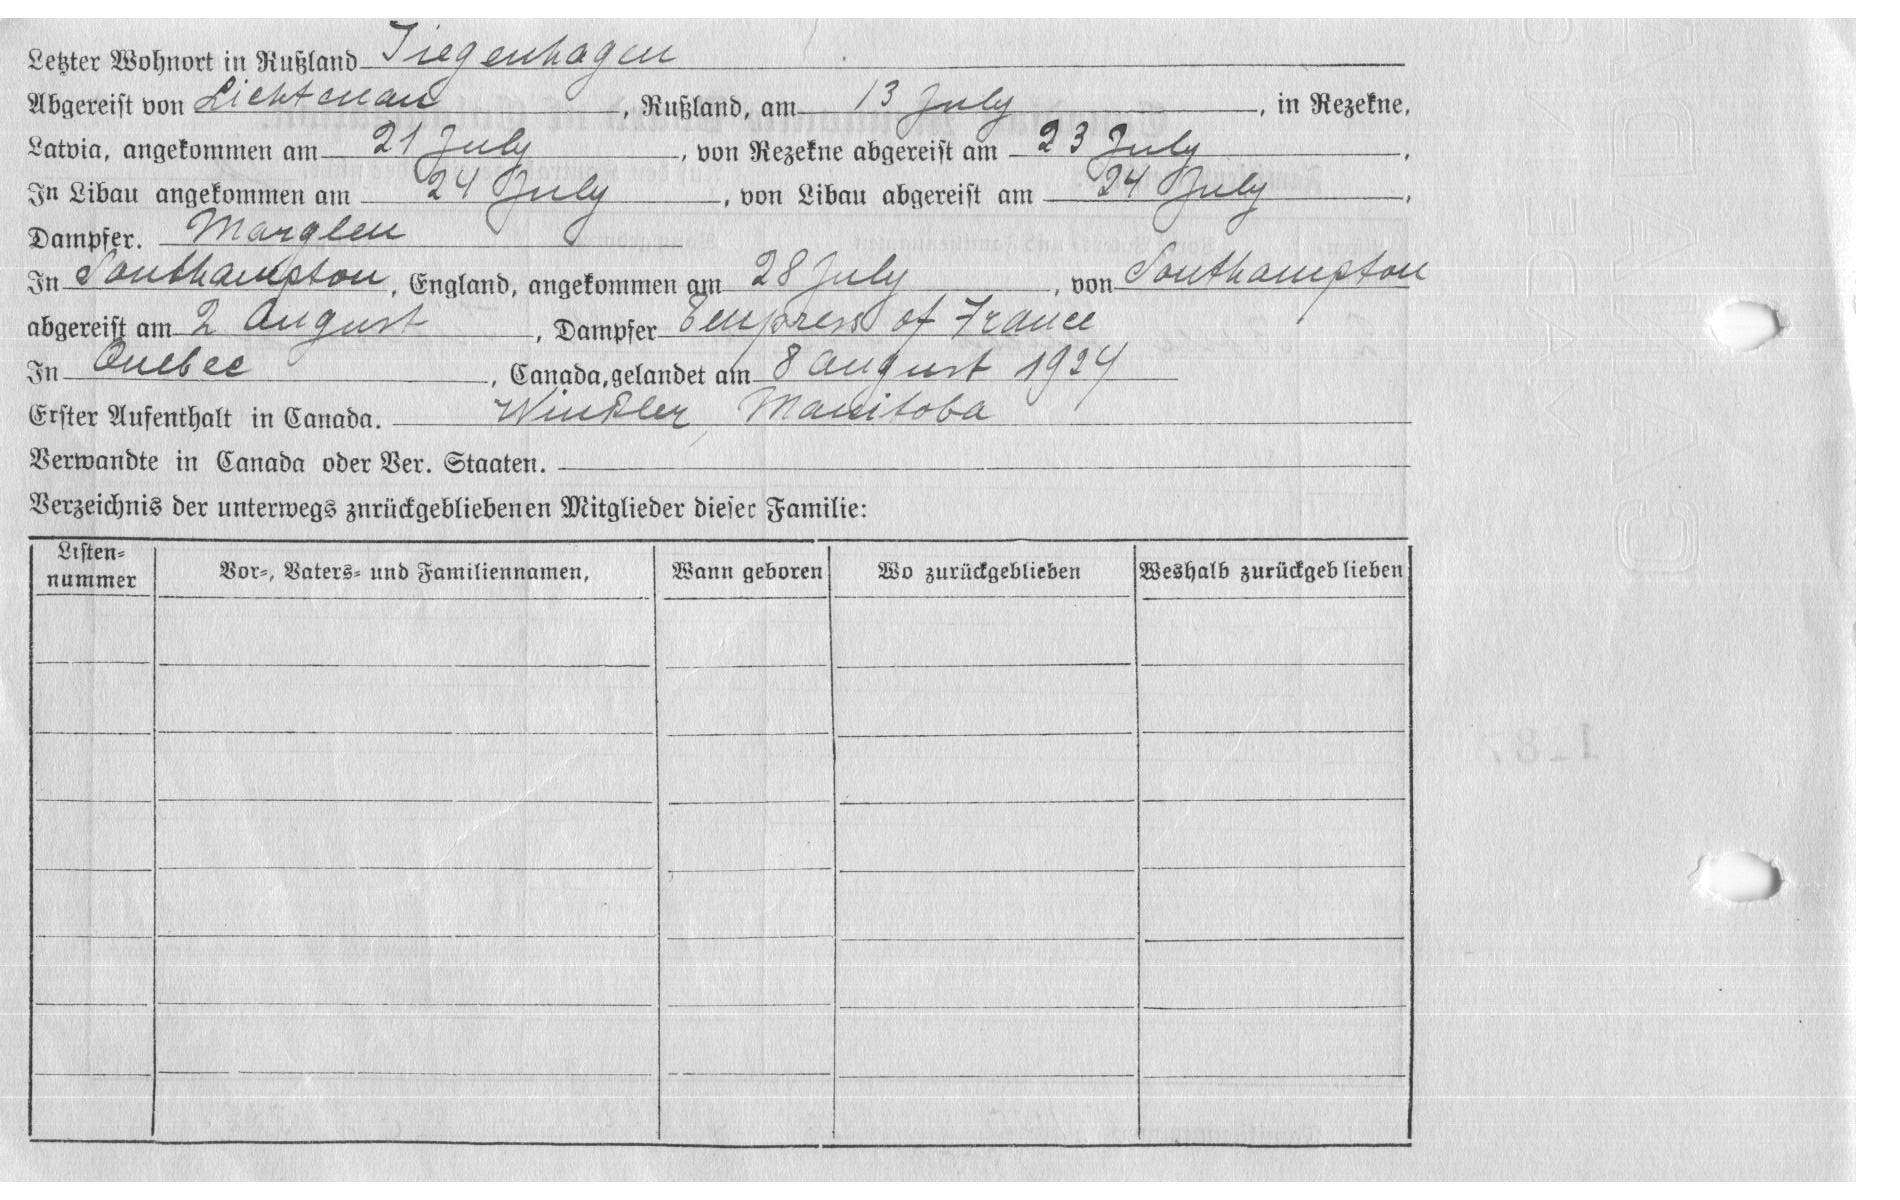 Letzter Wohnort in Rußland Tiegenhagen
Abgereist von Lichtenau, Rußland, am 13 July, in Rezekne,
Latvia, angekommen am 21 July, von Rezekne abgereist am 23 July,
In Libau angekommen am 24 July, von Libau abgereist am 24 July,
Dampfer. Marglen
In Southampton, England, angekommen am 28 July, von Southampton
abgereist am 2 August, Dampfer Empress of France
In Quebec, Canada, gelandet am 8 August 1924
Erster Aufenthalt in Canada. Winkler, Manitoba
Verwandte in Canada oder Ver. Staaten.
Verzeichnis der unterwegs zurückgebliebenen Mitglieder dieser Familie:
Listen-
nummer Vor-, Vaters- und Familiennamen, Wann geboren Wo zurückgeblieben Weshalb zurückgeblieben